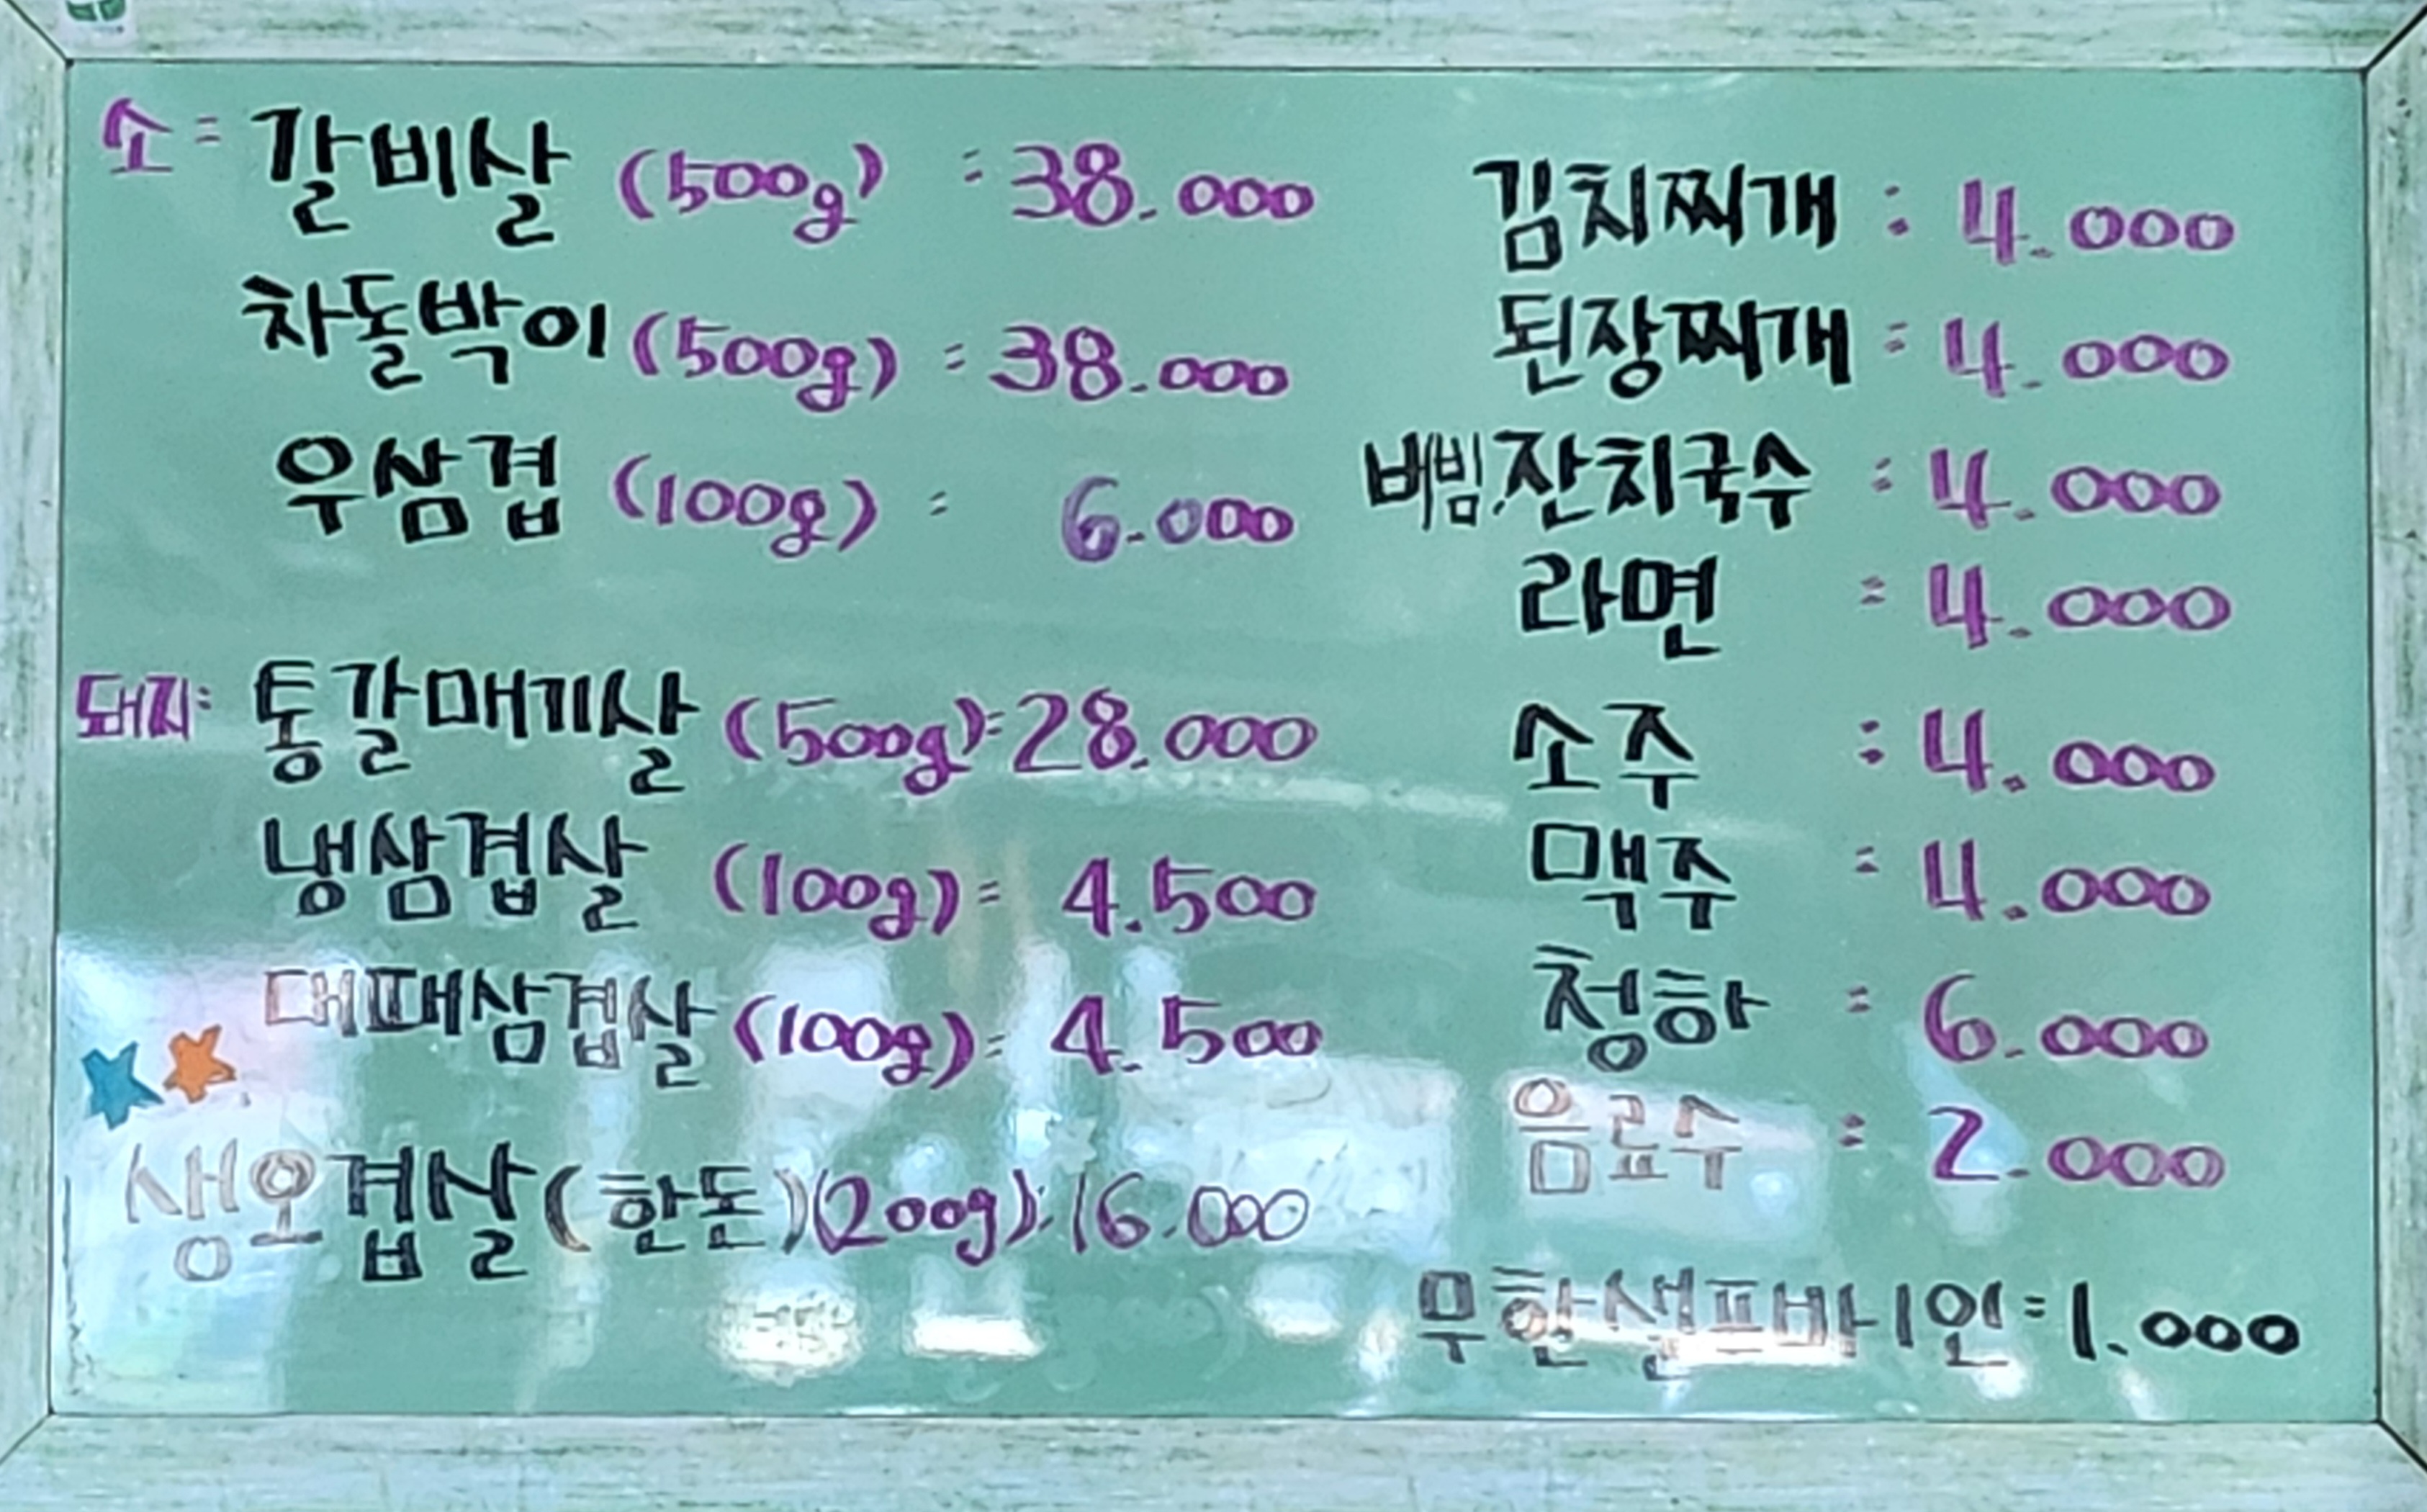 소 : 갈비살 (500g) : 38.000
차돌박이 (500g) : 38.000
우삼겹 (100g) : 6.000
돼지: 통갈매기살 (500g): 28.000
냉삼겹살 (100g) : 4.500
대패삼겹살 (100g) : 4.500
생오겹살 (한돈) (200g): 16.000
김치찌개 : 4.000
된장찌개 : 4.000
비빔/잔치국수 : 4.000
라면 : 4.000
소주 : 4.000
맥주 : 4.000
청하 : 6.000
음료수 : 2.000
무한샐프바 1인 : 1.000